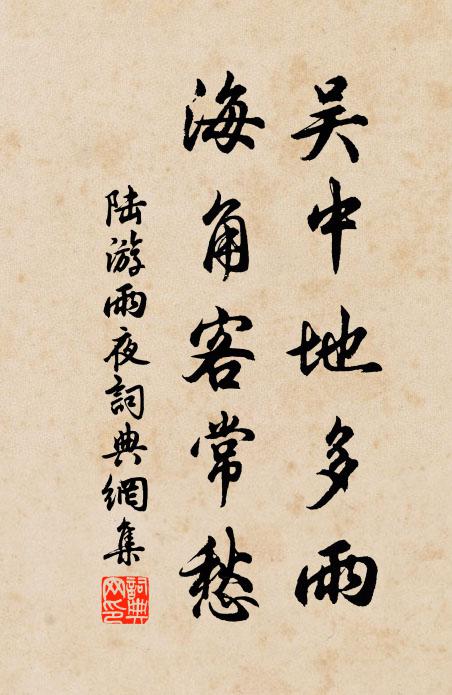 吴中地多雨
海角客常愁
陆游雨夜詞典網集
詞典網印